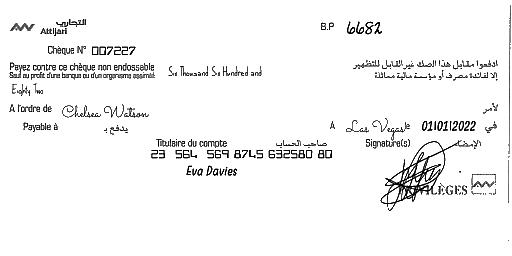 التجاري
Attijari
B.P 6682
Chèque N° 007227
Payez contre ce chèque non endossable
Sauf au profit d'une banque ou d'un organisme assimilé
Six Thousand Six Hundred and
ادفعوا مقابل هذا الصك غير القابل للتظهير
إلا لفائدة مصرف أو مؤسسة مالية مماثلة
Eighty Two
A l'ordre de Chelsea Watson لأمر
Payable à يدفع بـ A Las Vegas le 01/01/2022 في
Titulaire du compte صاحب الحساب Signature(s) الإمضاء
23 564 569 8745 632580 80
Eva Davies
PRIVILÈGES